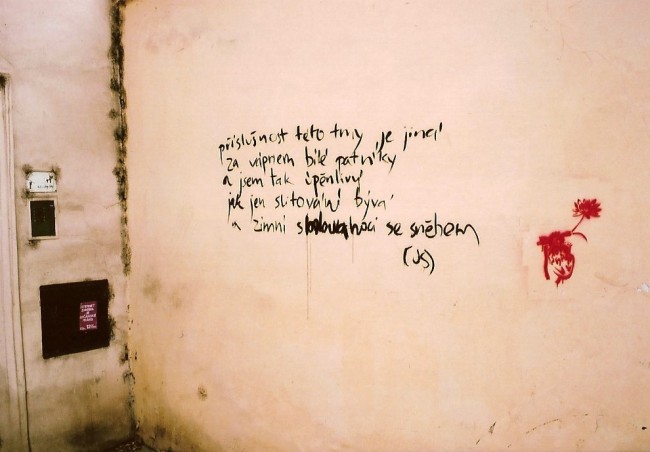 příslušnost této tmy je jiná
za vápnem bílé patníky
a jsem tak úpěnlivý
jak jen slitování bývá
a zimní se sněhem
(JS)